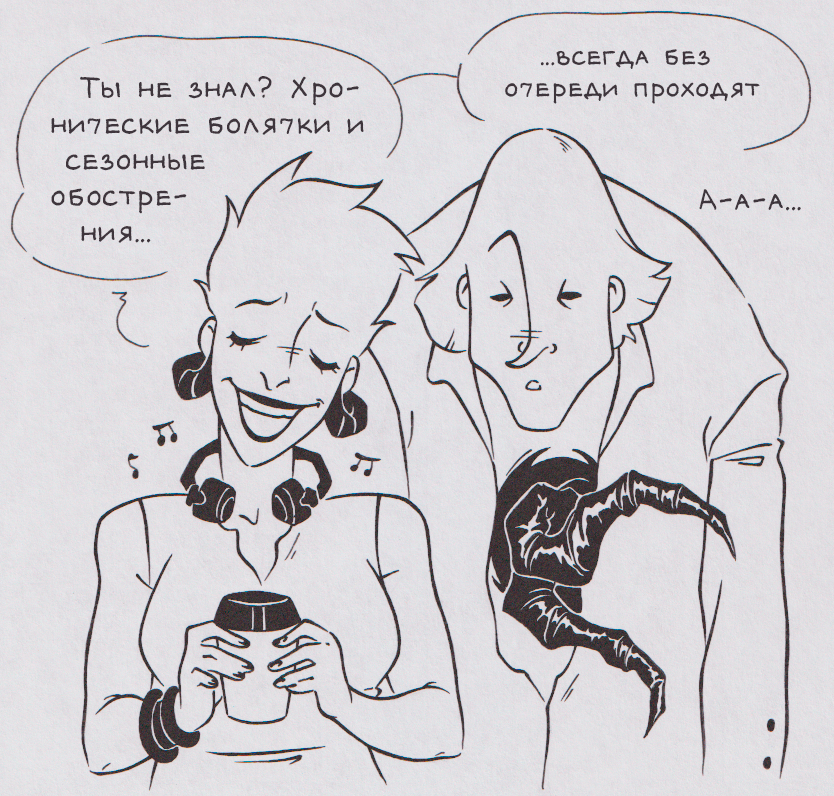 Ты не знал? Хро-
нические болячки и
сезонные
обостре-
ния...
...всегда без
очереди проходят
А-а-а...